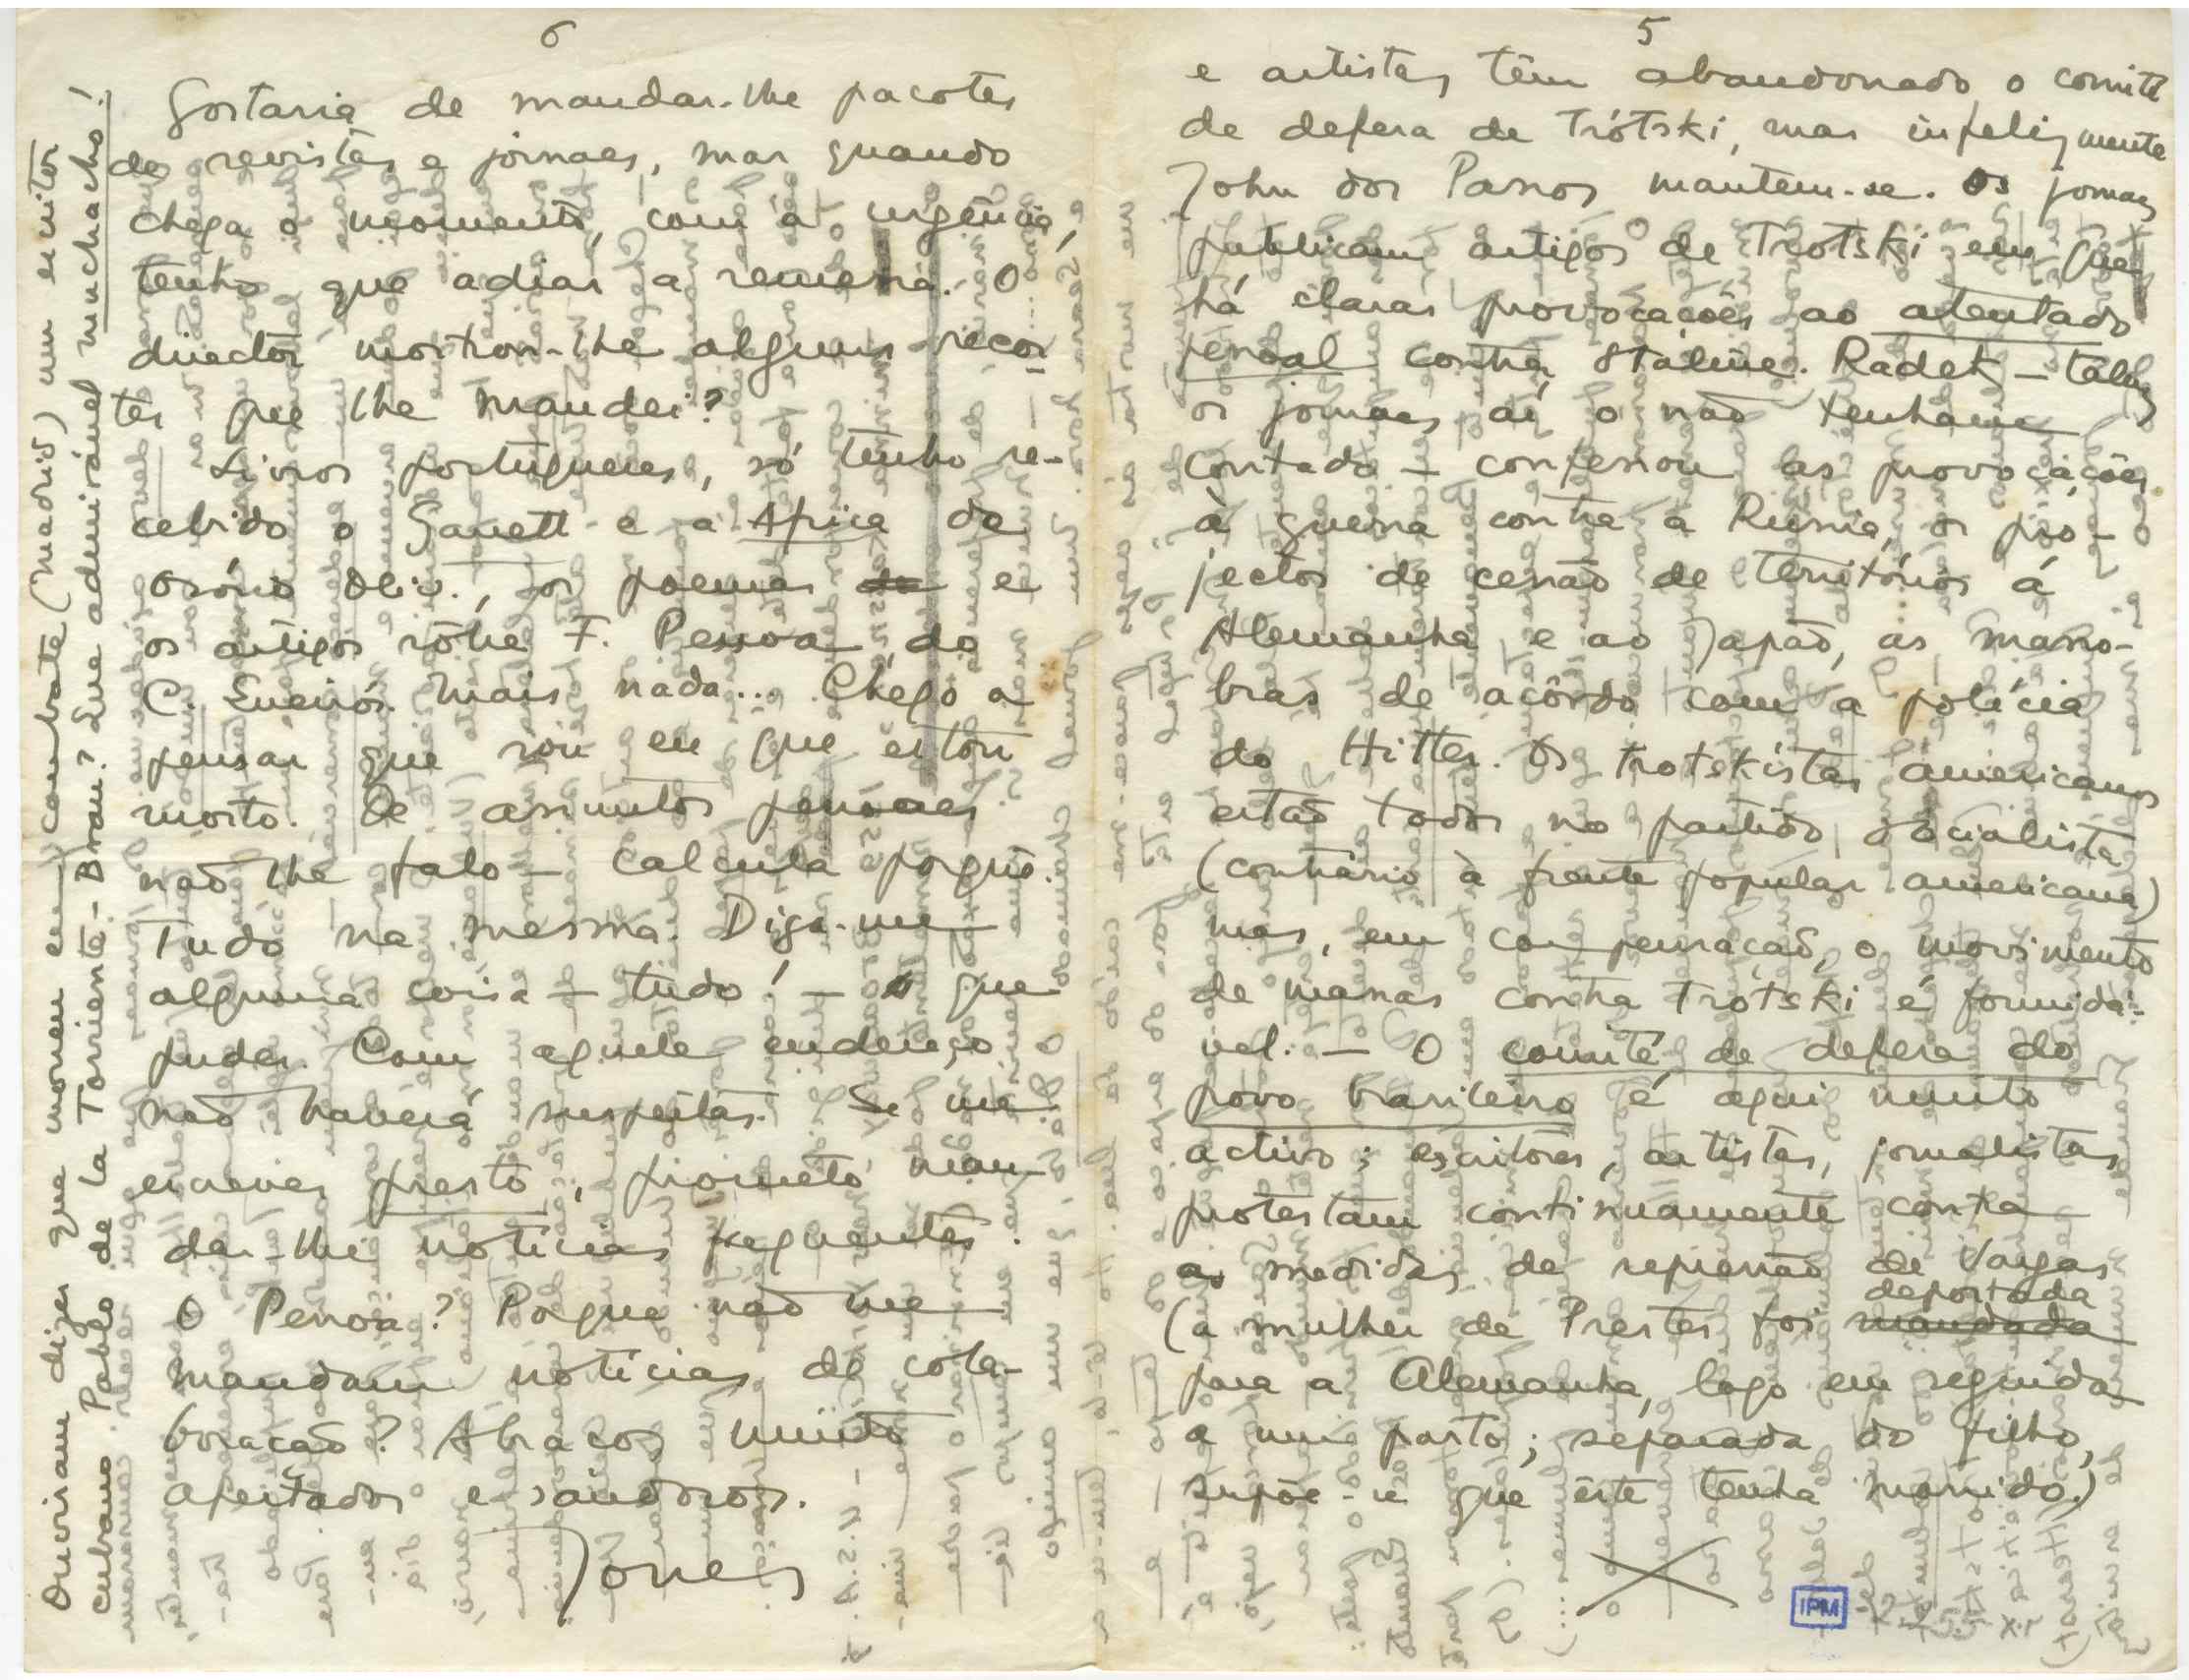 5
e artistas têm abandonado o comité
de defesa de Trótski, mas infelizmente
John dos Passos mantem-se. Os jornaes
publicam artigos de Trotski em que
há claras provocações ao atentado
pessoal contra Stáline. Radek — talvez
os jornaes aí o não tenham
contado — confessou as provocações
à guerra contra a Rússia, os pro-
jectos de cessão de territórios á
Alemanha e ao Japão, as mano-
bras de acôrdo com a polícia
do Hitler. Os trotskistas americanos
estão todos no partido socialista
(contrário à frente popular americana)
mas, em compensação, o movimento
de massas contra Trótski é formidá-
vel. — O comité de defesa do
povo brasileiro é aqui muito
activo: escritores, artistas, jornalistas
protestam continuamente contra
as medidas de repressão de Vargas
(a mulher de Prestes foi mandada deportada
para a Alemanha, logo em seguida
a um parto; separada do filho,
supõe-se que êste tenha morrido.)
6
Gostaria de mandar-lhe pacotes
de revistas e jornaes, mas quando
chega o momento, com a urgência,
tenho que adiar a remessa. O
director mostrou-lhe alguns recor-
tes que lhe mandei?
Livros portugueses, só tenho re-
cebido o Garrett e a Africa do
Osório Oliv., os poemas de e
os artigos sôbre F. Pessoa do
C. Queirós. Mais nada... Chego a
pensar que sou eu que estou
morto. De assuntos pessoaes
não lhe falo — calcula porquê.
Tudo na mesma. Diga-me
alguma coisa — tudo! — o que
puder. Com aquele endereço
não haverá suspeitas. Se me
escrever presto, prometo man-
dar-lhe notícias frequentes.
O Pessoa? Porque não me
mandam notícias de cola-
boração? Abraços muito
apertados e saudosos.
Jones
Ouviram dizer que morreu em combate (Madrid) um escritor
cubano Pablo de la Torriente-Brau? Que admirável muchacho!
IPM